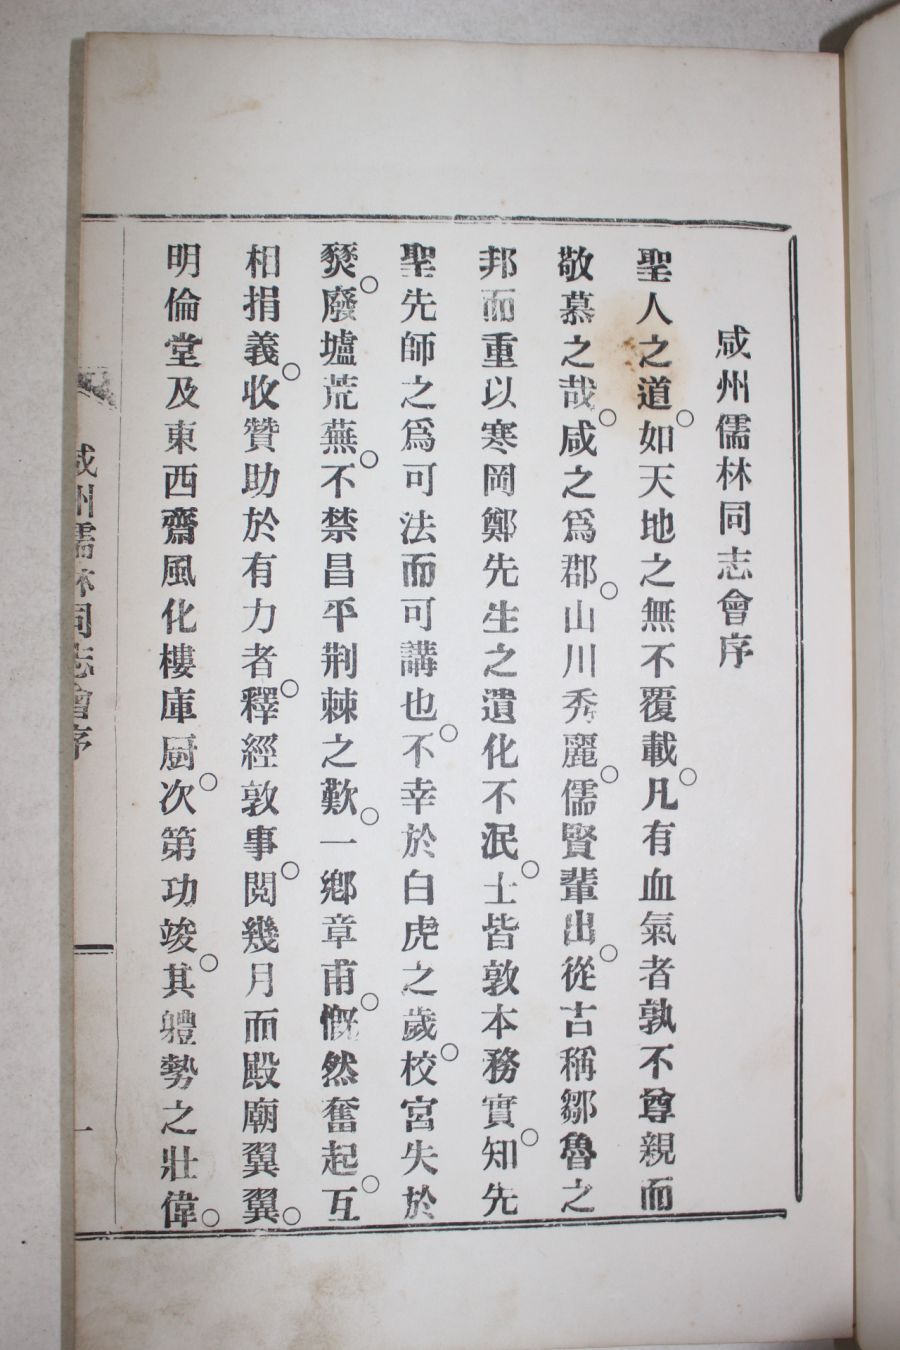 咸州儒林同志會序
聖人之道。如天地之無不覆載。凡有血氣者孰不尊親而
敬慕之哉。咸之爲郡。山川秀麗。儒賢輩出。從古稱鄒魯之
邦而重以寒岡鄭先生之遺化不泯。士皆敦本務實。知先
聖先師之爲可法而可講也。不幸於白虎之歲。校宮失於
燹。廢墟荒蕪。不禁昌平荆棘之歎。一鄕章甫。慨然奮起。互
相捐義。收贊助於有力者。釋經敦事。閱幾月而殿廟翼翼。
明倫堂及東西齋風化樓庫厨。次第功竣。其軆勢之壯偉。
咸州儒林同志會序
一